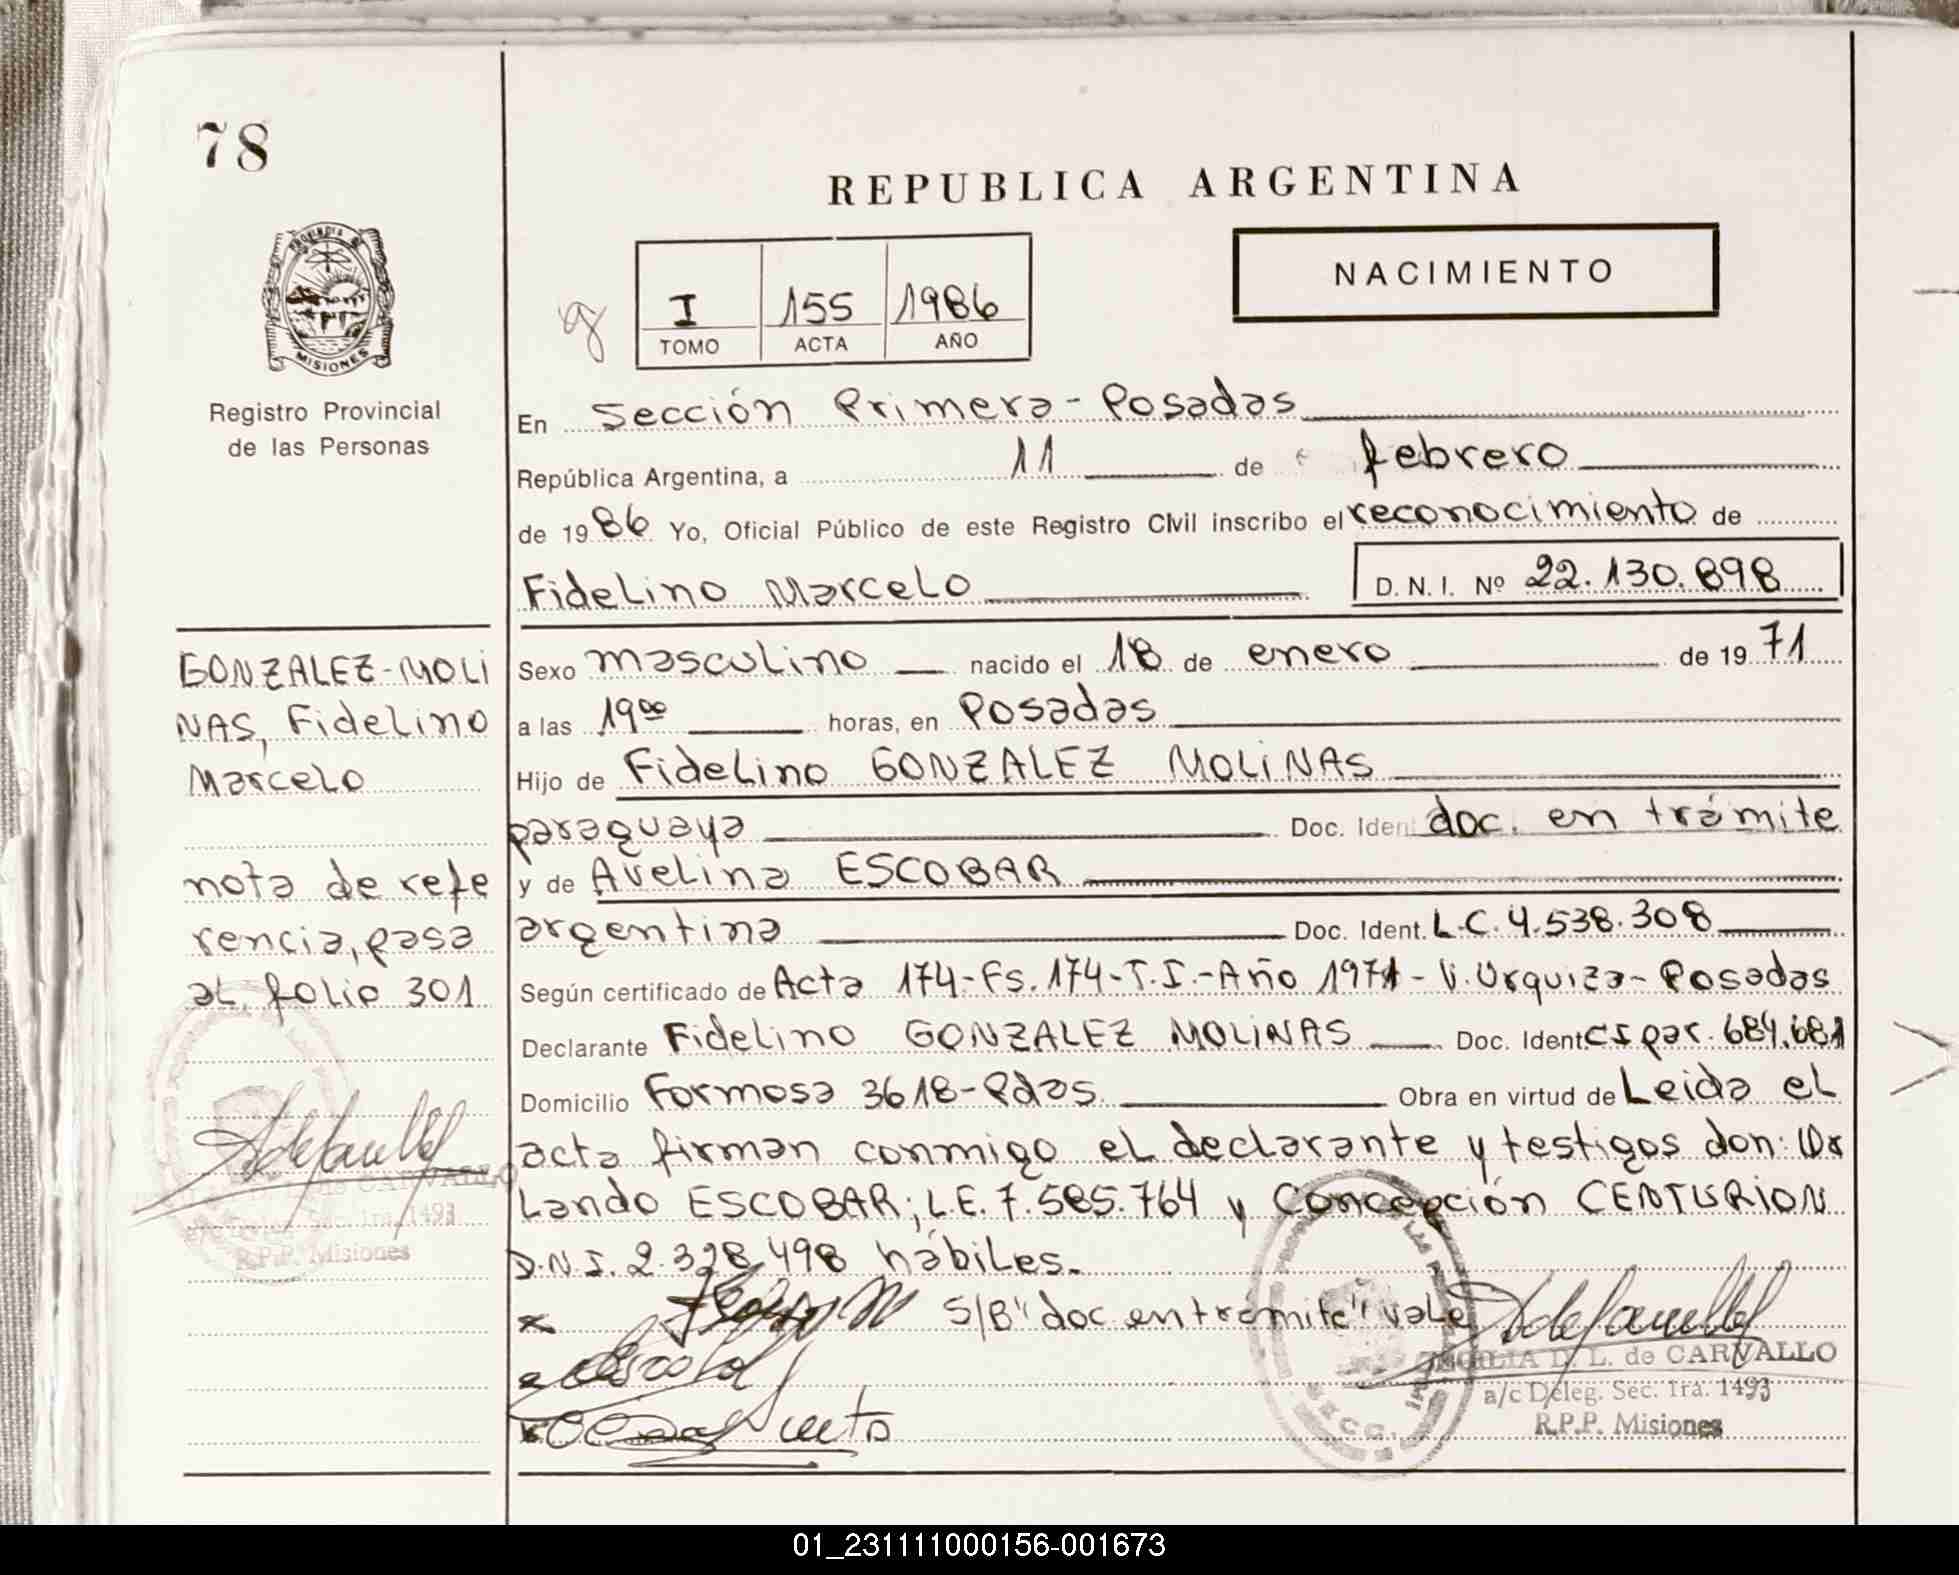 78
REPUBLICA ARGENTINA
NACIMIENTO
I 155 1986
TOMO ACTA AÑO
MISIONES
Registro Provincial
de las Personas
En Sección Primera - Posadas
República Argentina, a 11 de febrero
de 1986 Yo, Oficial Público de este Registro Civil inscribo el reconocimiento de
Fidelino Marcelo D. N. I. Nº 22.130.898
GONZALEZ-MOLI
NAS, Fidelino
Marcelo
nota de refe
rencia, pasa
al folio 301
Sexo masculino nacido el 18 de enero de 1971
a las 19⁰⁰ horas, en Posadas
Hijo de Fidelino GONZALEZ MOLINAS
paraguaya Doc. Iden doc. en trámite
y de Avelina ESCOBAR
argentina Doc. Ident. L.C. 4.538.308
Según certificado de Acta 174-Fs.174-T.I.-Año 1971 - V. Urquiza- Posadas
Declarante Fidelino GONZALEZ MOLINAS Doc. Ident. CI par. 684.681
Domicilio Formosa 3618-Pdas. Obra en virtud de Leida el
acta firman conmigo el declarante y testigos don: Or
lando ESCOBAR; L.E. 7.585.764 y Concepción CENTURION
D.N.I. 2.328.498 hábiles.
S/B "doc en tramite" vale
D. L. de CARVALLO
a/c Deleg. Sec. 1ra. 1493
R.P.P. Misiones
CARVALLO
Sec. 1ra. 1493
R.P.P. Misiones
01_231111000156-001673